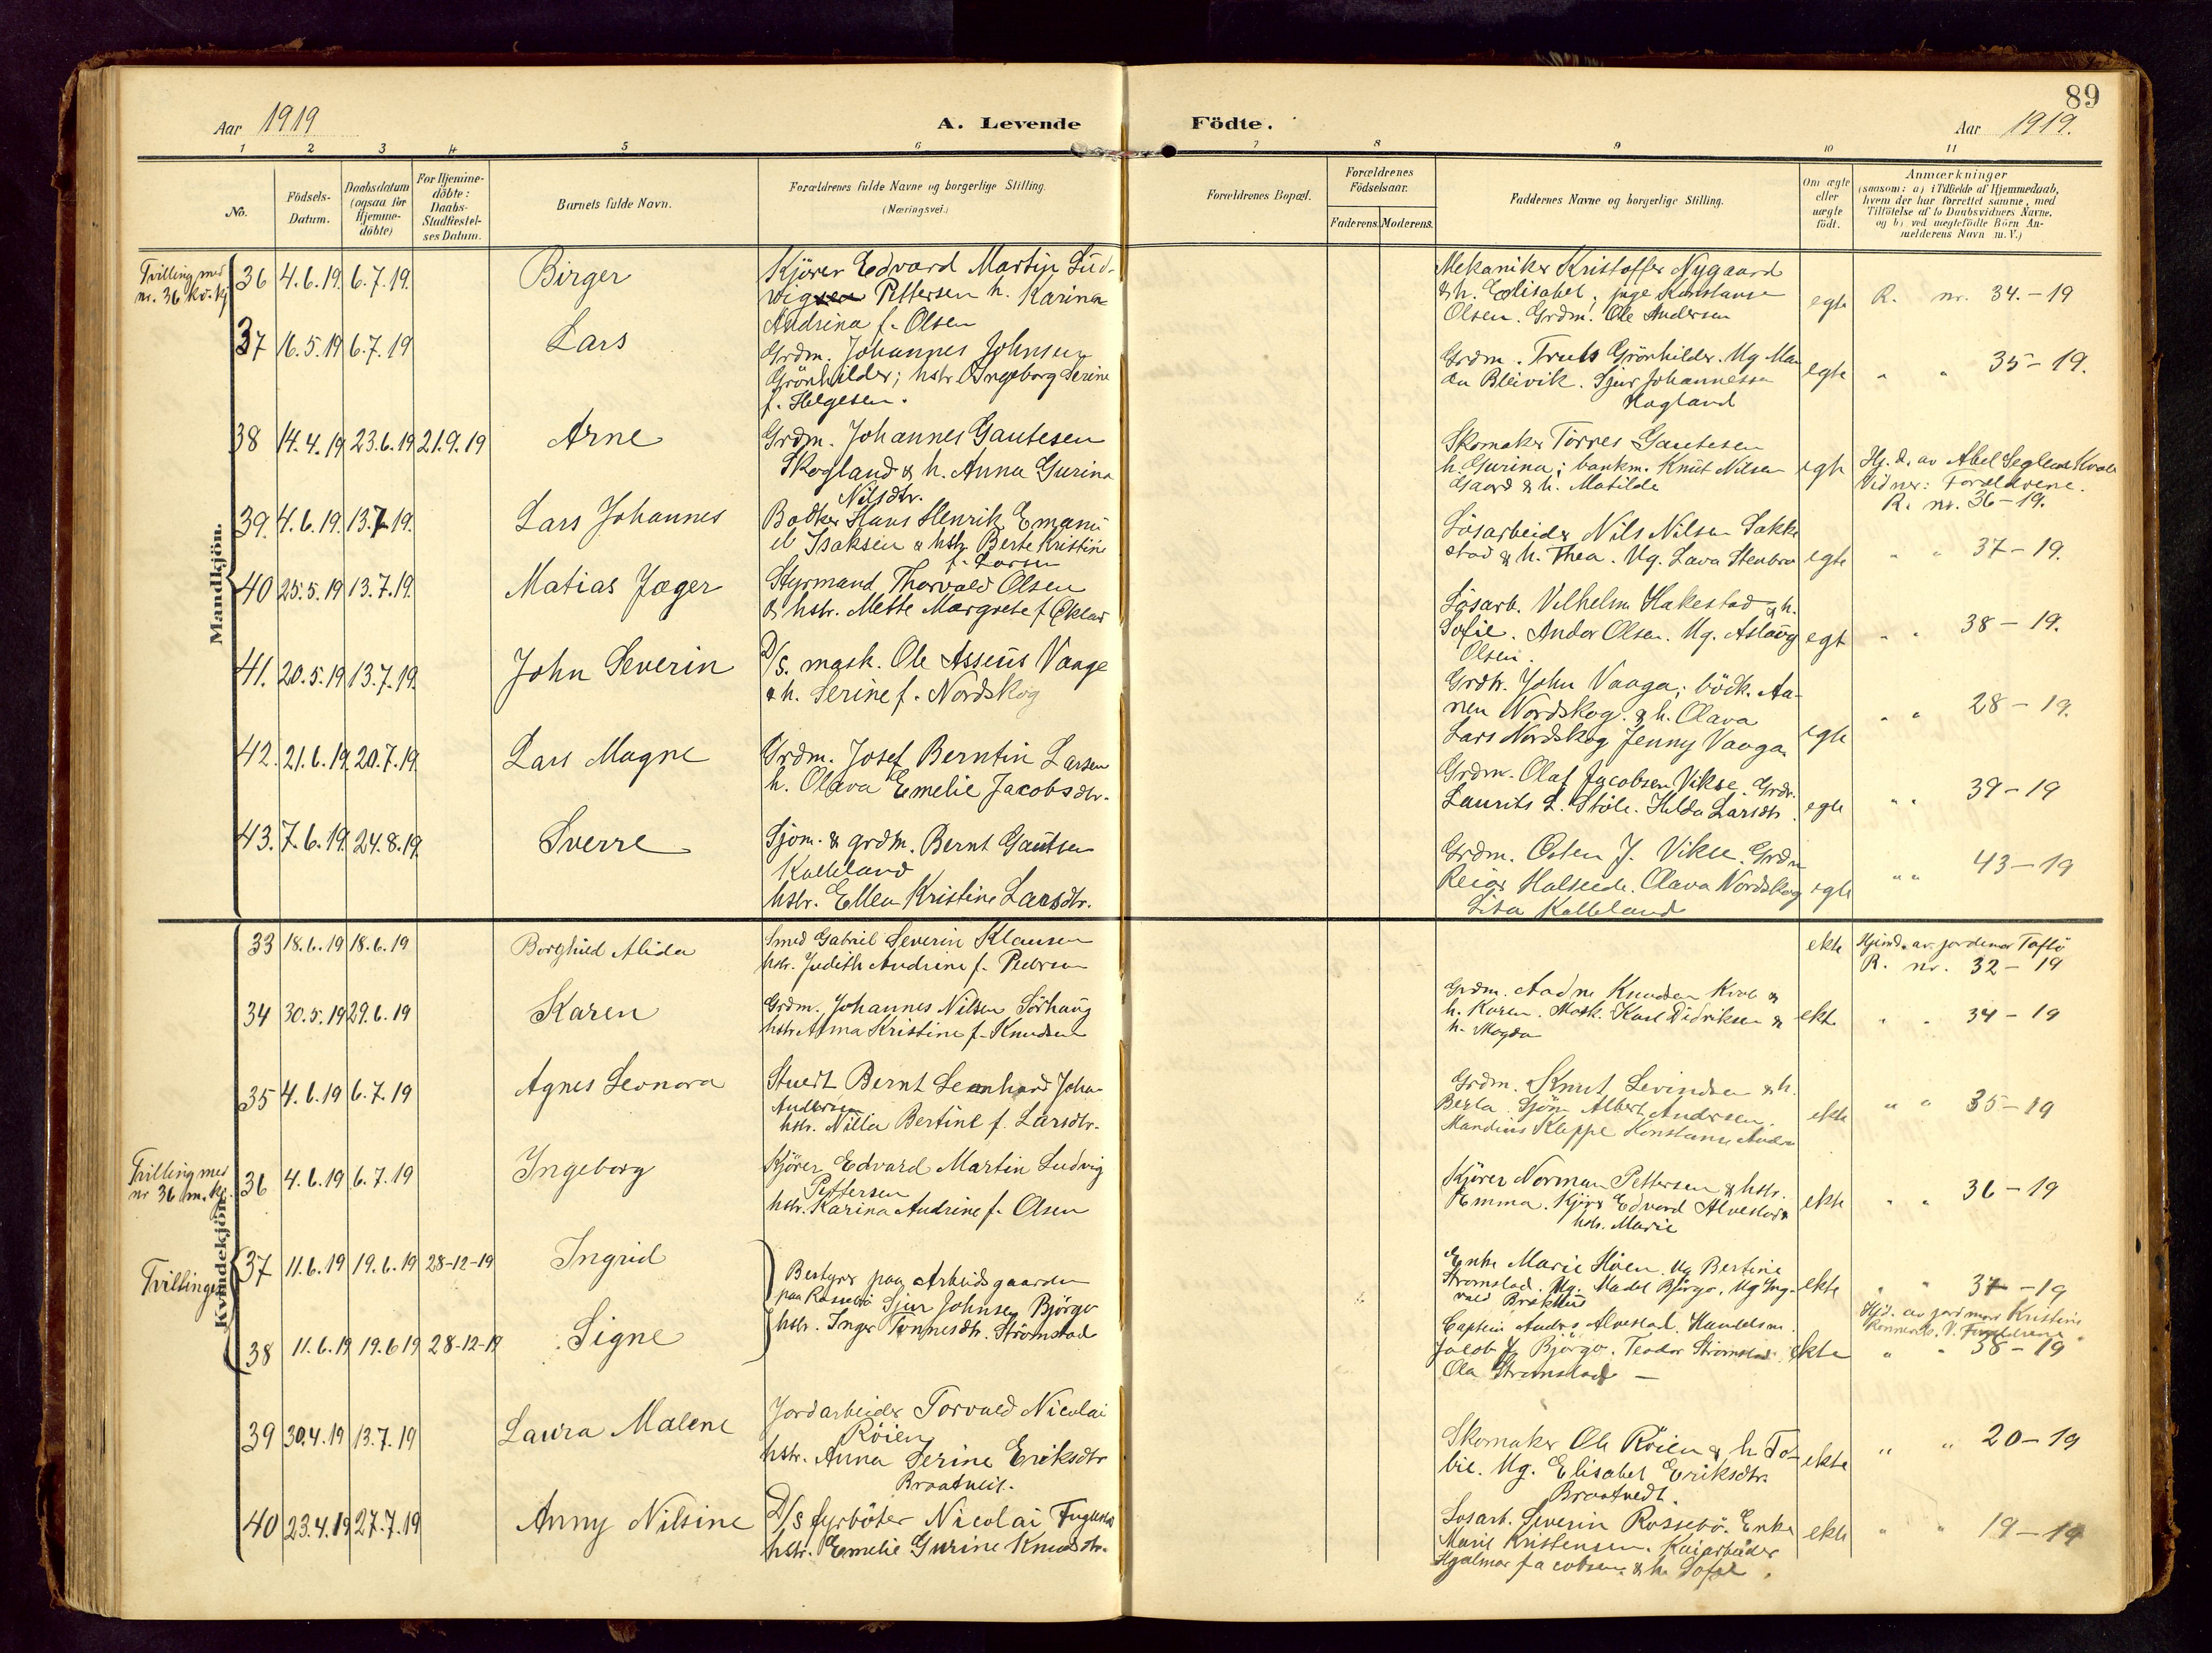 89
Aar 1919
A. Levende Födte.
Aar 1919.
1 2 3 4 5 6 7 8 9 10 11
No.
Födsels-Datum.
Daabsdatum (ogsaa for Hjemme-döbte)
For Hjemme-döbte: Daabs-Stadfæstel-ses Datum.
Barnets fulde Navn.
Forældrenes fulde Navne og borgerlige Stilling.
(Næringsvei.)
Forældrenes Bopæl.
Forældrenes Födselsaar.
Faderens. Moderens.
Faddernes Navne og borgerlige Stilling.
Om ægte eller uægte födt.
Anmærkninger
(saasom: a) i Tilfælde af Hjemmedaab,
hvem der har forrettet samme, med
Tilföielse af to Daabsvidners Navne.
og b) ved uægtefödte Börn An-
melderens Navn m. V.)
Mandkjön.
Tvilling med
nr. 36 kv. kj
36 4.6.19. 6.7.19. Birger
Kjörer Edvard Martin Lud-
vig Pettersen h. Karina
Andrina f. Olsen
Mekaniker Kristoffer Nygaard
& h. Elisabet; pige Konstanse
Olsen. Grdm. Ole Andersen
egte R. nr. 34.-19
37 16.5.19 6.7.19 Lars
Grdm. Johannes Johnsen
Grönhilder; hstr. Ingeborg Serine
f. Helgesen.
Grdm. Truls Grönhilder. Ug. Man
da Bleivik. Sjur Johannessen
Hogland
egte " " 35-19.
38 14.4.19 23.6.19 21.9.19 Arne
Grdm. Johannes Gautesen
Skogland & h. Anna Gurina
Nilsdtr.
Skomaker Torres Gautesen
h. Gurina; bankm. Knut Nilsen
Gaard & h. Matilde
egte Hj. d. av Abel Seglem Kvale
Vidner: Foreldrene.
R. nr. 36-19.
39. 4.6.19. 13.7.19. Lars Johannes
Bödker Hans Henrik Emanu
el Isaksen & hstr. Berte Kristine
f. Larsen
Lösarbeider Nils Nilsen Sakke
stad & h. Thea. Ug. Lava Stenbro
egte " " 37-19.
40 25.5.19 13.7.19. Matias Jæger
Styrmand Thorvald Olsen
& hstr. Mette Margrete f. Økland
Lösarb. Vilhelm Hakestad & h.
Sofie. Andor Olsen. Ug. Aslaug
Olsen.
egte " " 38-19.
41. 20.5.19 13.7.19. John Severin
D/S. mask. Ole Asseus Vaage
& h. Serine f. Nordskog
Grdbr. John Vaaga; bödk. Aa-
nen Nordskog & h. Olava
Lars Nordskog Jenny Vaaga
egte " " 28-19.
42. 21.6.19. 20.7.19. Lars Magne
Grdm. Josef Berntin Larsen
h. Olava Emelie Jacobsdtr.
Grdm. Olaf Jacobsen Vikse. Grdr.
Laurits L. Stöle. Hulda Larsdtr.
egte " " 39-19
43. 7.6.19. 24.8.19. Sverre
Sjom. & grdm. Bernt Gautsen
Kalleland
hstr. Ellen Kristine Larsdtr.
Grdm. Osten J. Vikse. Grdm
Reiar Halseide. Olava Nordskog
Lisa Kalleland
egte " " 43-19
Kvindekjön.
33 18.6.19 18.6.19 Borghild Alida
Smed Gabriel Severin Klausen
hstr. Judith Andrine f. Pedersen
ekte Hjemd. av jordemor Toftö
R. nr. 32-19
34 30.5.19 29.6.19 Karen
Grdm. Johannes Nilsen Sörhaug
hstr. Anna Kristine f. Knudsen
Grdm. Aadne Knudsen Kvale &
h. Karen. Mask. Karl Didriksen &
h. Magda
ekte " " 34-19
35 4.6.19 6.7.19 Agnes Leonora
Stuert Bernt Leonhard Johan
Andersen
hstr. Nilla Bertine f. Larsdtr.
Grdm. Knut Sevindsen & h.
Berta. Sjöm. Albert Andersen.
Mandius Kleppe Konstanse Andre
ekte " " 35-19
Tvilling med
nr 36 m. kj.
36 4.6.19 6.7.19 Ingeborg
Kjörer Edvard Martin Ludvig
Pettersen
hstr. Karina Andrine f. Olsen
Kjörer Norman Pettersen & hstr.
Emma. Kjörer Edvard Alvestad &
hstr. Marie
ekte " " 36-19
Tvillinger
37 11.6.19 19.6.19 28-12-19 Ingrid
Bestyrer paa Arbeidsgaarden
paa Rossebö Sjur Johnsen Björgo
hstr. Inger Tönnesdtr. Strömstad
Enke Marie Höen. Ug Bertine
Stromstad. Ug. Madel Björgo. Ug Ing-
vald Brekhus
ekte " " 37-19
Hjd. av jordmor Kristine
V. Foreldrene.
38 11.6.19 19.6.19 28-12-19 Signe
Captein Andres Alvestad. Handelsm.
Jacob J. Björgo. Teodor Strömstad
Ola Stromstad
ekte " " 38-19
39 30.4.19 13.7.19 Laura Malene
Jordarbeider Torvald Nicolai
Röien
hstr. Anna Serine Eriksdtr
Braatveit.
Skomaker Ole Röien & h. To-
bie. Ug. Elisabet Eriksdtr.
Braatvedt.
ekte " " 20-19
40 23.4.19 27.7.19 Anny Nilsine
D/S fyrböter Nicolai Fuglestad
hstr. Emelie Gurine Knudsdtr.
Losarb. Severin Rossebö. Enke
Marie Kristensen. Kaiarbeider
Hjalmar Jacobsen & h. Sofie.
ekte " " 19-19